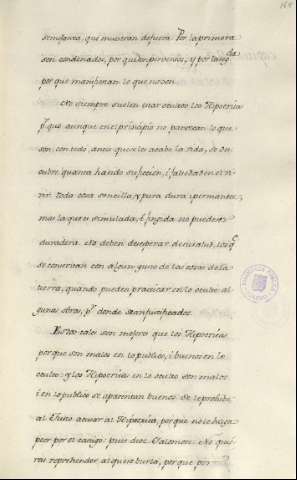 semejante, que muestran defuera. Por la primera
son condenados, por quien provocan, y por la seg^da
por que manifiestan lo que no son.
No siempre suelen estar ocultos los Hipocritas
p^r que aunque en el principio no parezcan lo que
son, con todo, antes que se les acabe la vida, se
en el vi-
vir. Todo otra sencilla, y pura dura i permanece,
mas la que es simulada, i fingida no puede ser
duradera. No deben desesperar de su salud, los q^e
se con algun guno de las obras de la
tierra, quando pueden practicar en lo oculto al
gunas obras, p^r donde sean justificados.
Estos tales son mejores que los Hipocritas
porque son malos en lo publico, i buenos en lo
oculto: y los Hipocritas en lo oculto son malos
i en lo publico se aparentan buenos. Se reprehibe
al Justo acusar al Hipocrita, porque no se haga
peor por el castigo: pues dice Salomon: No quie
ras reprehender al que se burla, porque por